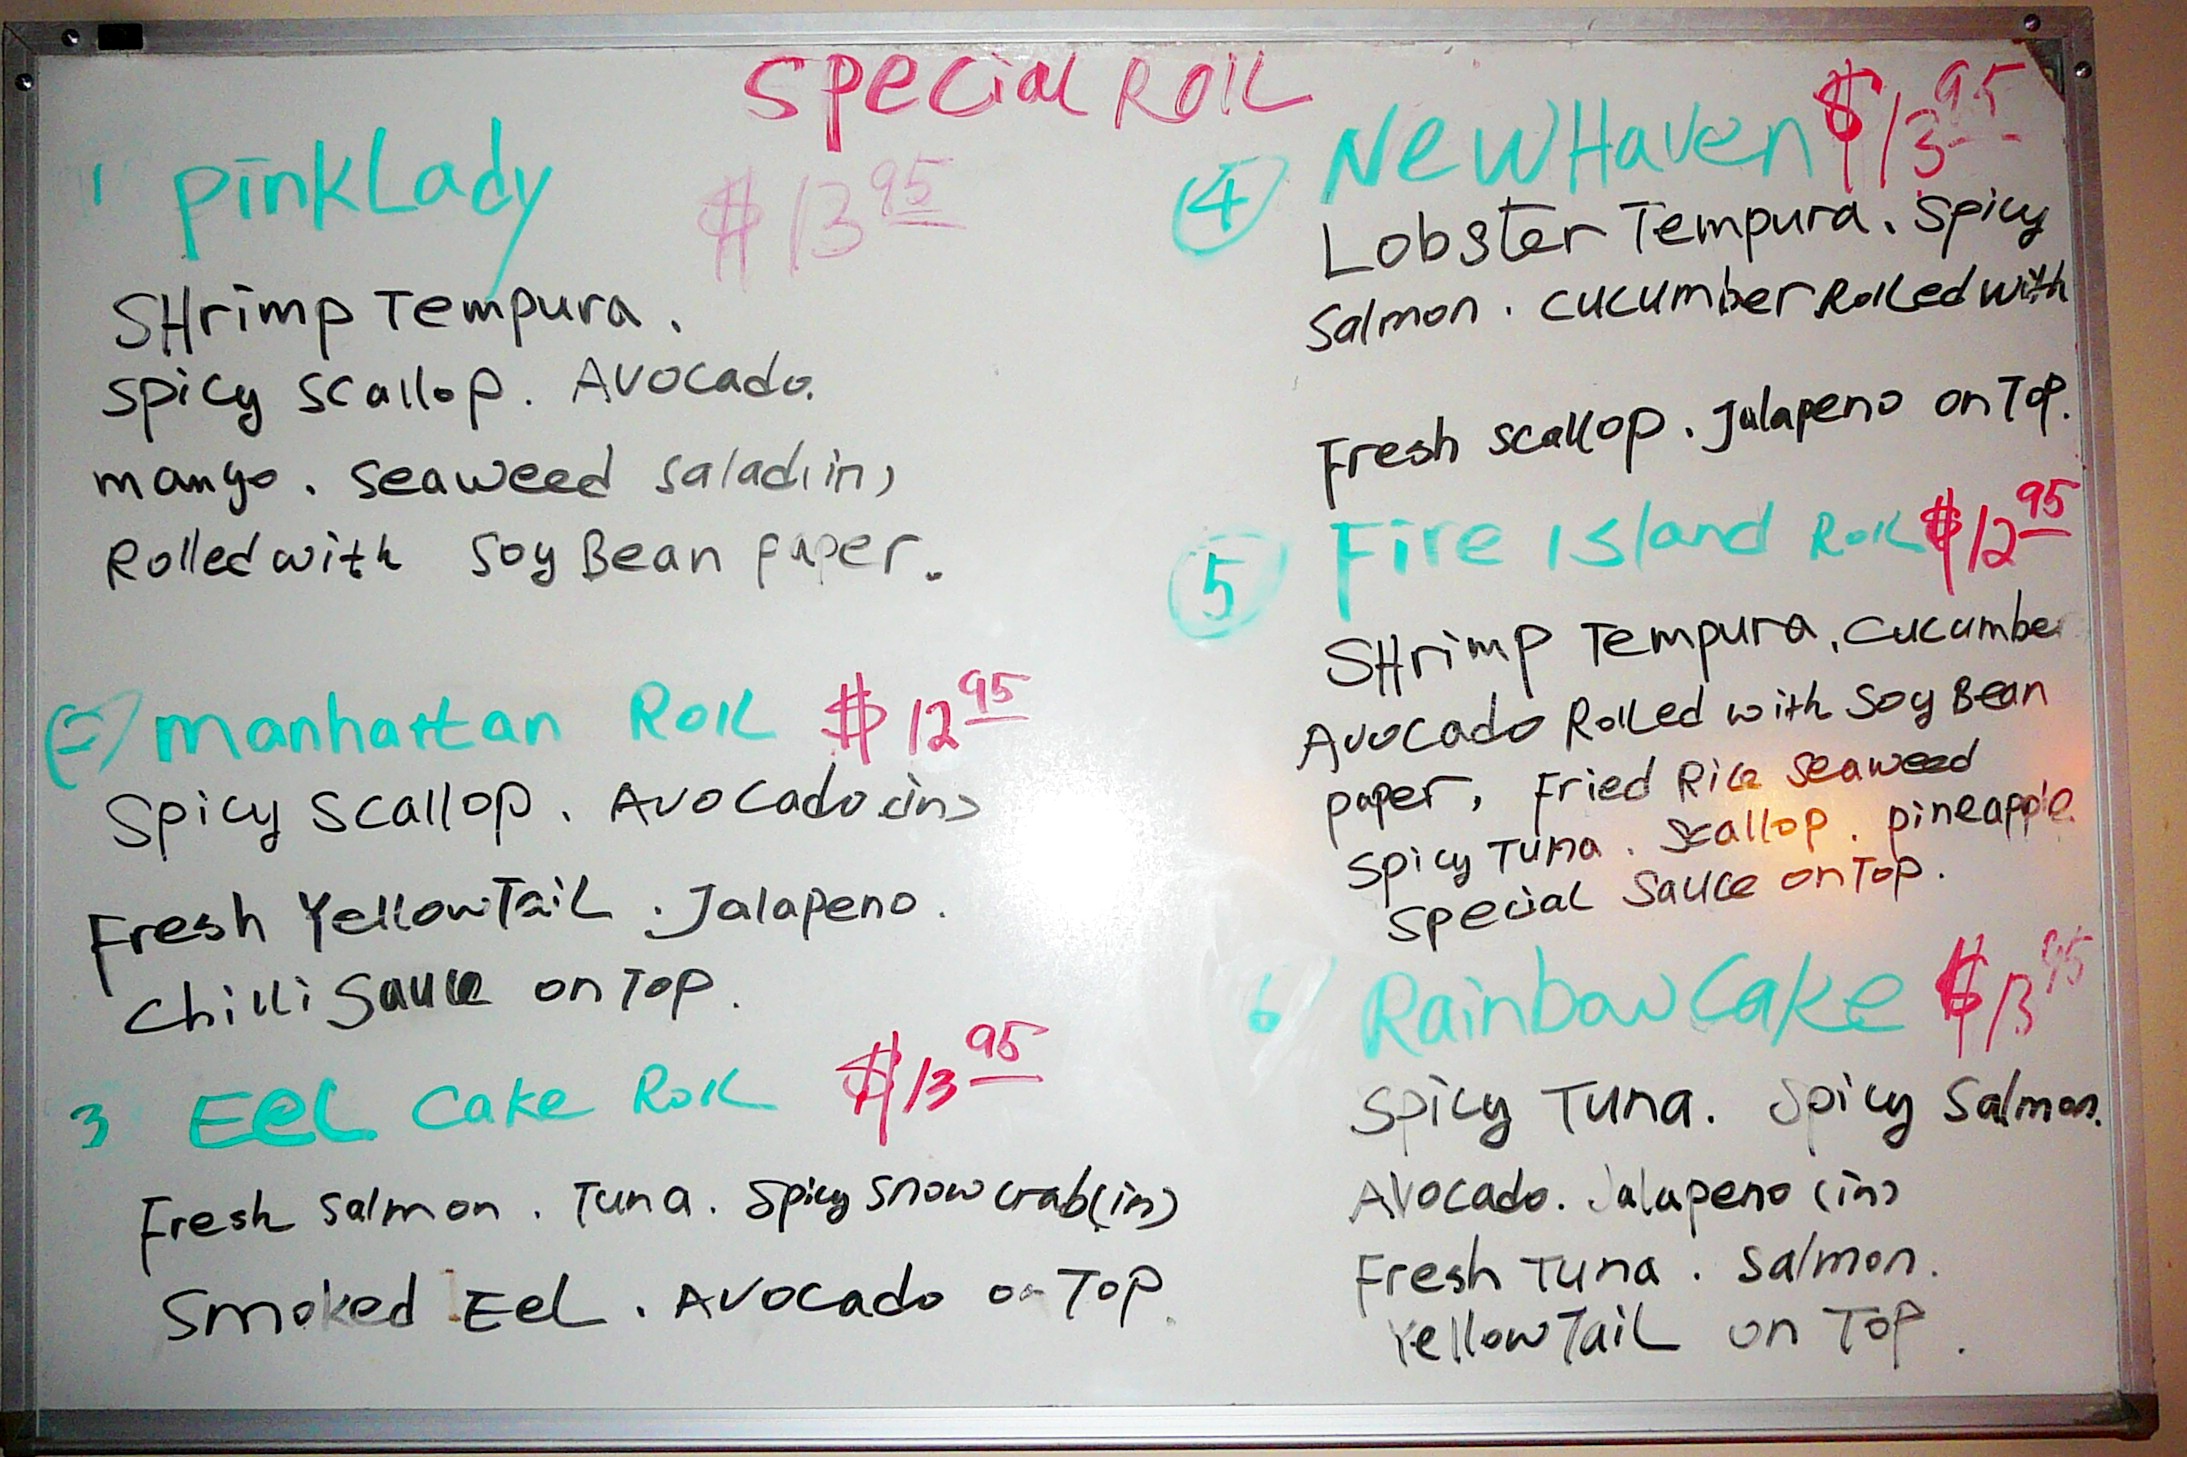 Special Roll
1 Pink Lady $13.95
Shrimp Tempura.
Spicy Scallop. Avocado.
mango. Seaweed Salad(in)
Rolled with Soy Bean paper.
2 manhattan Roll $12.95
Spicy Scallop. Avocado(in)
Fresh Yellow Tail. Jalapeno.
Chilli Sauce on Top.
3 Eel Cake Roll $13.95
Fresh Salmon. Tuna. Spicy Snow crab(in)
Smoked Eel. Avocado on Top.
4 New Haven $13.95
Lobster Tempura. Spicy
Salmon. cucumber Rolled with
Fresh scallop. Jalapeno on Top.
5 Fire Island Roll $12.95
Shrimp Tempura, cucumber
Avocado Rolled with Soy Bean
paper, Fried Rice Seaweed
Spicy Tuna. Scallop. pineapple.
Special Sauce on Top.
6 Rainbow Cake $13.95
Spicy Tuna. Spicy Salmon.
Avocado. Jalapeno (in)
Fresh Tuna. Salmon.
Yellow Tail on Top.